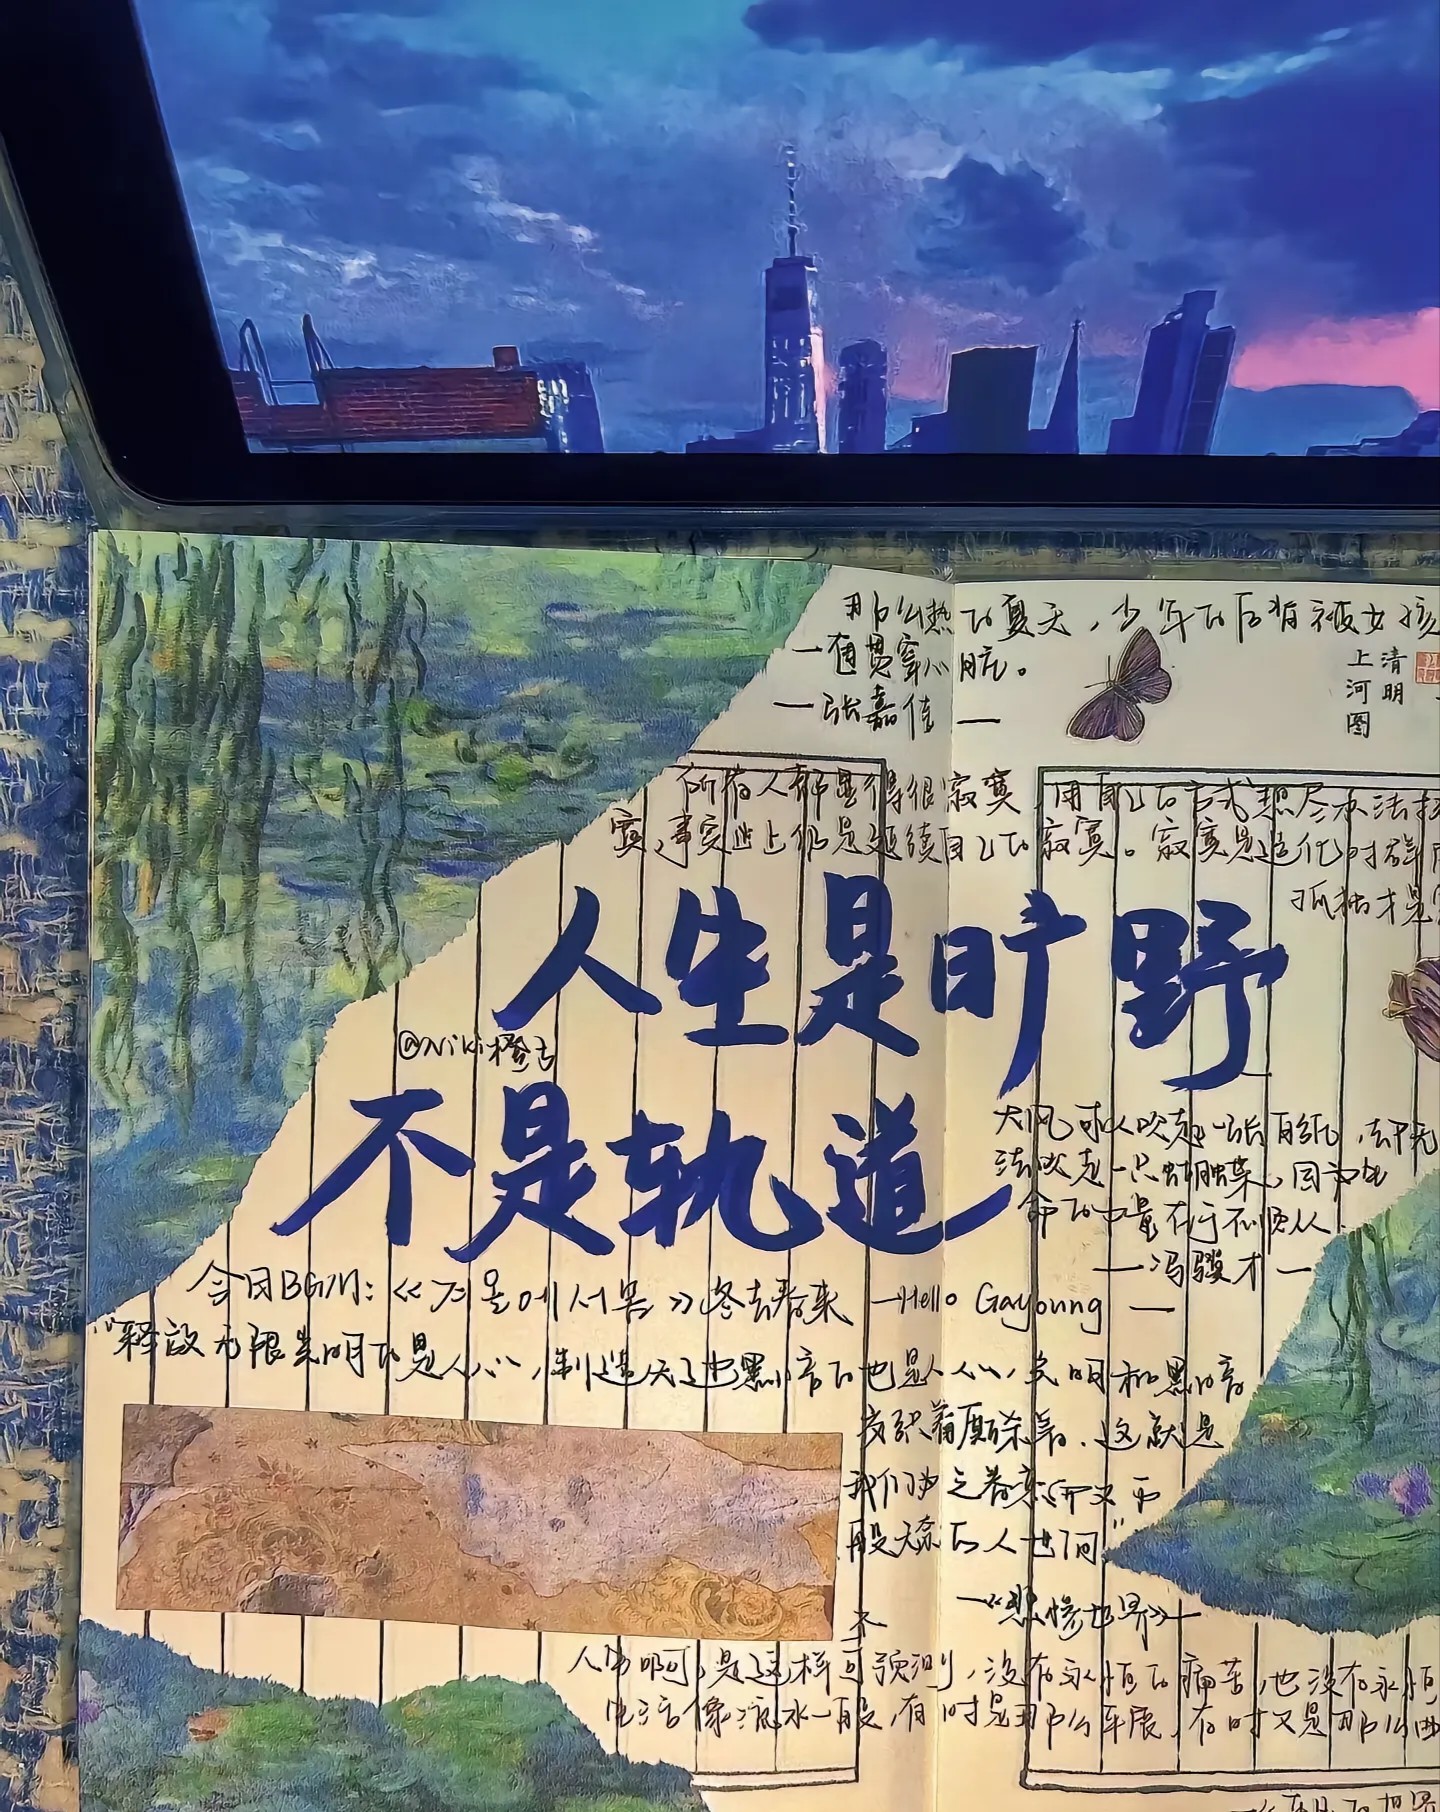 那么热的夏天，少年的后背被女孩
一直贯穿心脏。
—张嘉佳—
清明
上河图
所有人都显得很寂寞，用自己的方式想尽办法排
寞，事实上仍是延续自己的寂寞。寂寞是造化对群
孤独才是
人生是旷野
@Niki橙
不是轨道
大风可以吹走一张白纸，却无
法吹走一只蝴蝶，因为生
命的力量在于不顺从.
—冯骥才—
今日BGM:《겨울에서 봄》冬去春来 —Hello Gayoung—
"释放无限光明的是人心，制造无边黑暗的也是人心，光明和黑暗
交织着厮杀着，这就是
我们为之眷恋而又万
般无奈的人世间"
—《悲惨世界》—
人生啊，是这样不可预测，没有永恒的痛苦，也没有永恒
生活像流水一般，有时是那么平展，有时又是那么曲